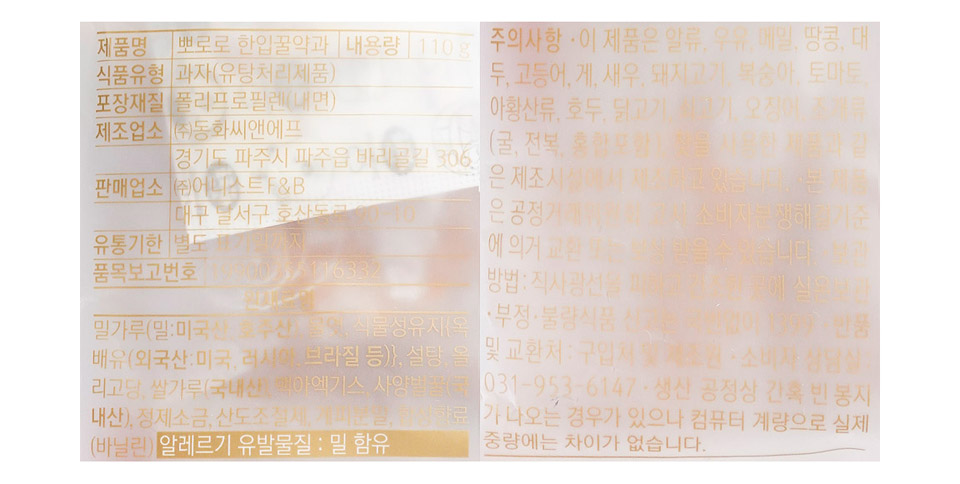 제품명 뽀로로 한입꿀약과 내용량 110 g
식품유형 과자(유탕처리제품)
포장재질 폴리프로필렌(내면)
제조업소 ㈜동화씨앤에프
경기도 파주시 파주읍 바리골길 306
판매업소 ㈜어니스트F&B
대구 달서구 호산동로
유통기한 별도
품목보고번호
밀가루(밀:미국산, 호주산), 식물성유지{옥
배유(외국산:미국, 러시아, 브라질 등)}, 설탕, 올
리고당, 쌀가루(국내산), 맥아엑기스, 사양벌꿀(국
내산), 정제소금, 산도조절제,
(바닐린) 알레르기 유발물질 : 밀 함유
주의사항 ·이 제품은 알류, 우유, 메밀, 땅콩, 대
두, 고등어, 게, 새우, 돼지고기, 복숭아, 토마토,
아황산류, 호두, 닭고기, 쇠고기, 오징어, 조개류
(굴, 전복, 홍합 포함)
은 제조시설에서 제조하고 있습니다. ·본 제품
은 공정거래위원회 고시 소비자분쟁해결기준
에 의거 교환 또는 보상 받을 수 있습니다.
방법:직사광선을
·부정·불량식품 신고는 국번없이 1399 ·반품
및 교환처:구입처 및 제조원 ·소비자 상담실:
031-953-6147 ·생산 공정상 간혹 빈 봉지
가 나오는 경우가 있으나 컴퓨터 계량으로 실제
중량에는 차이가 없습니다.